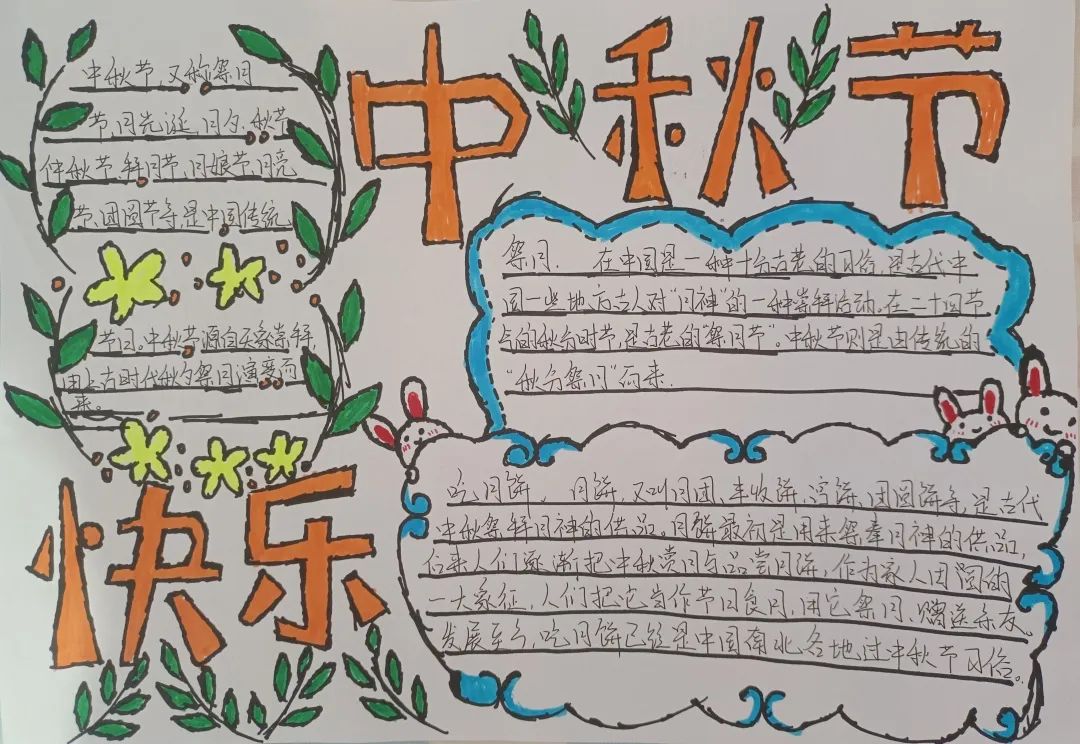 中秋节
中秋节，又称祭月
节、月光诞、月夕、秋节
仲秋节、拜月节、月娘节、月亮
节、团圆节等，是中国传统
节日。中秋节源自天象崇拜，
由上古时代秋夕祭月演变而
来。
祭月. 在中国是一种十分古老的习俗，是古代中
国一些地方古人对“月神”的一种崇拜活动。在二十四节
气的秋分时节，是古老的“祭月节”。中秋节则是由传统的
“秋分祭月”而来.
快乐
吃月饼。月饼，又叫月团、丰收饼、宫饼、团圆饼等，是古代
中秋祭拜月神的供品。月饼最初是用来祭奉月神的供品，
后来人们逐渐把中秋赏月与品尝月饼，作为家人团圆的
一大象征，人们把它当作节日食月，用它祭月、赠送亲友。
发展至今，吃月饼已经是中国南北各地过中秋节习俗。